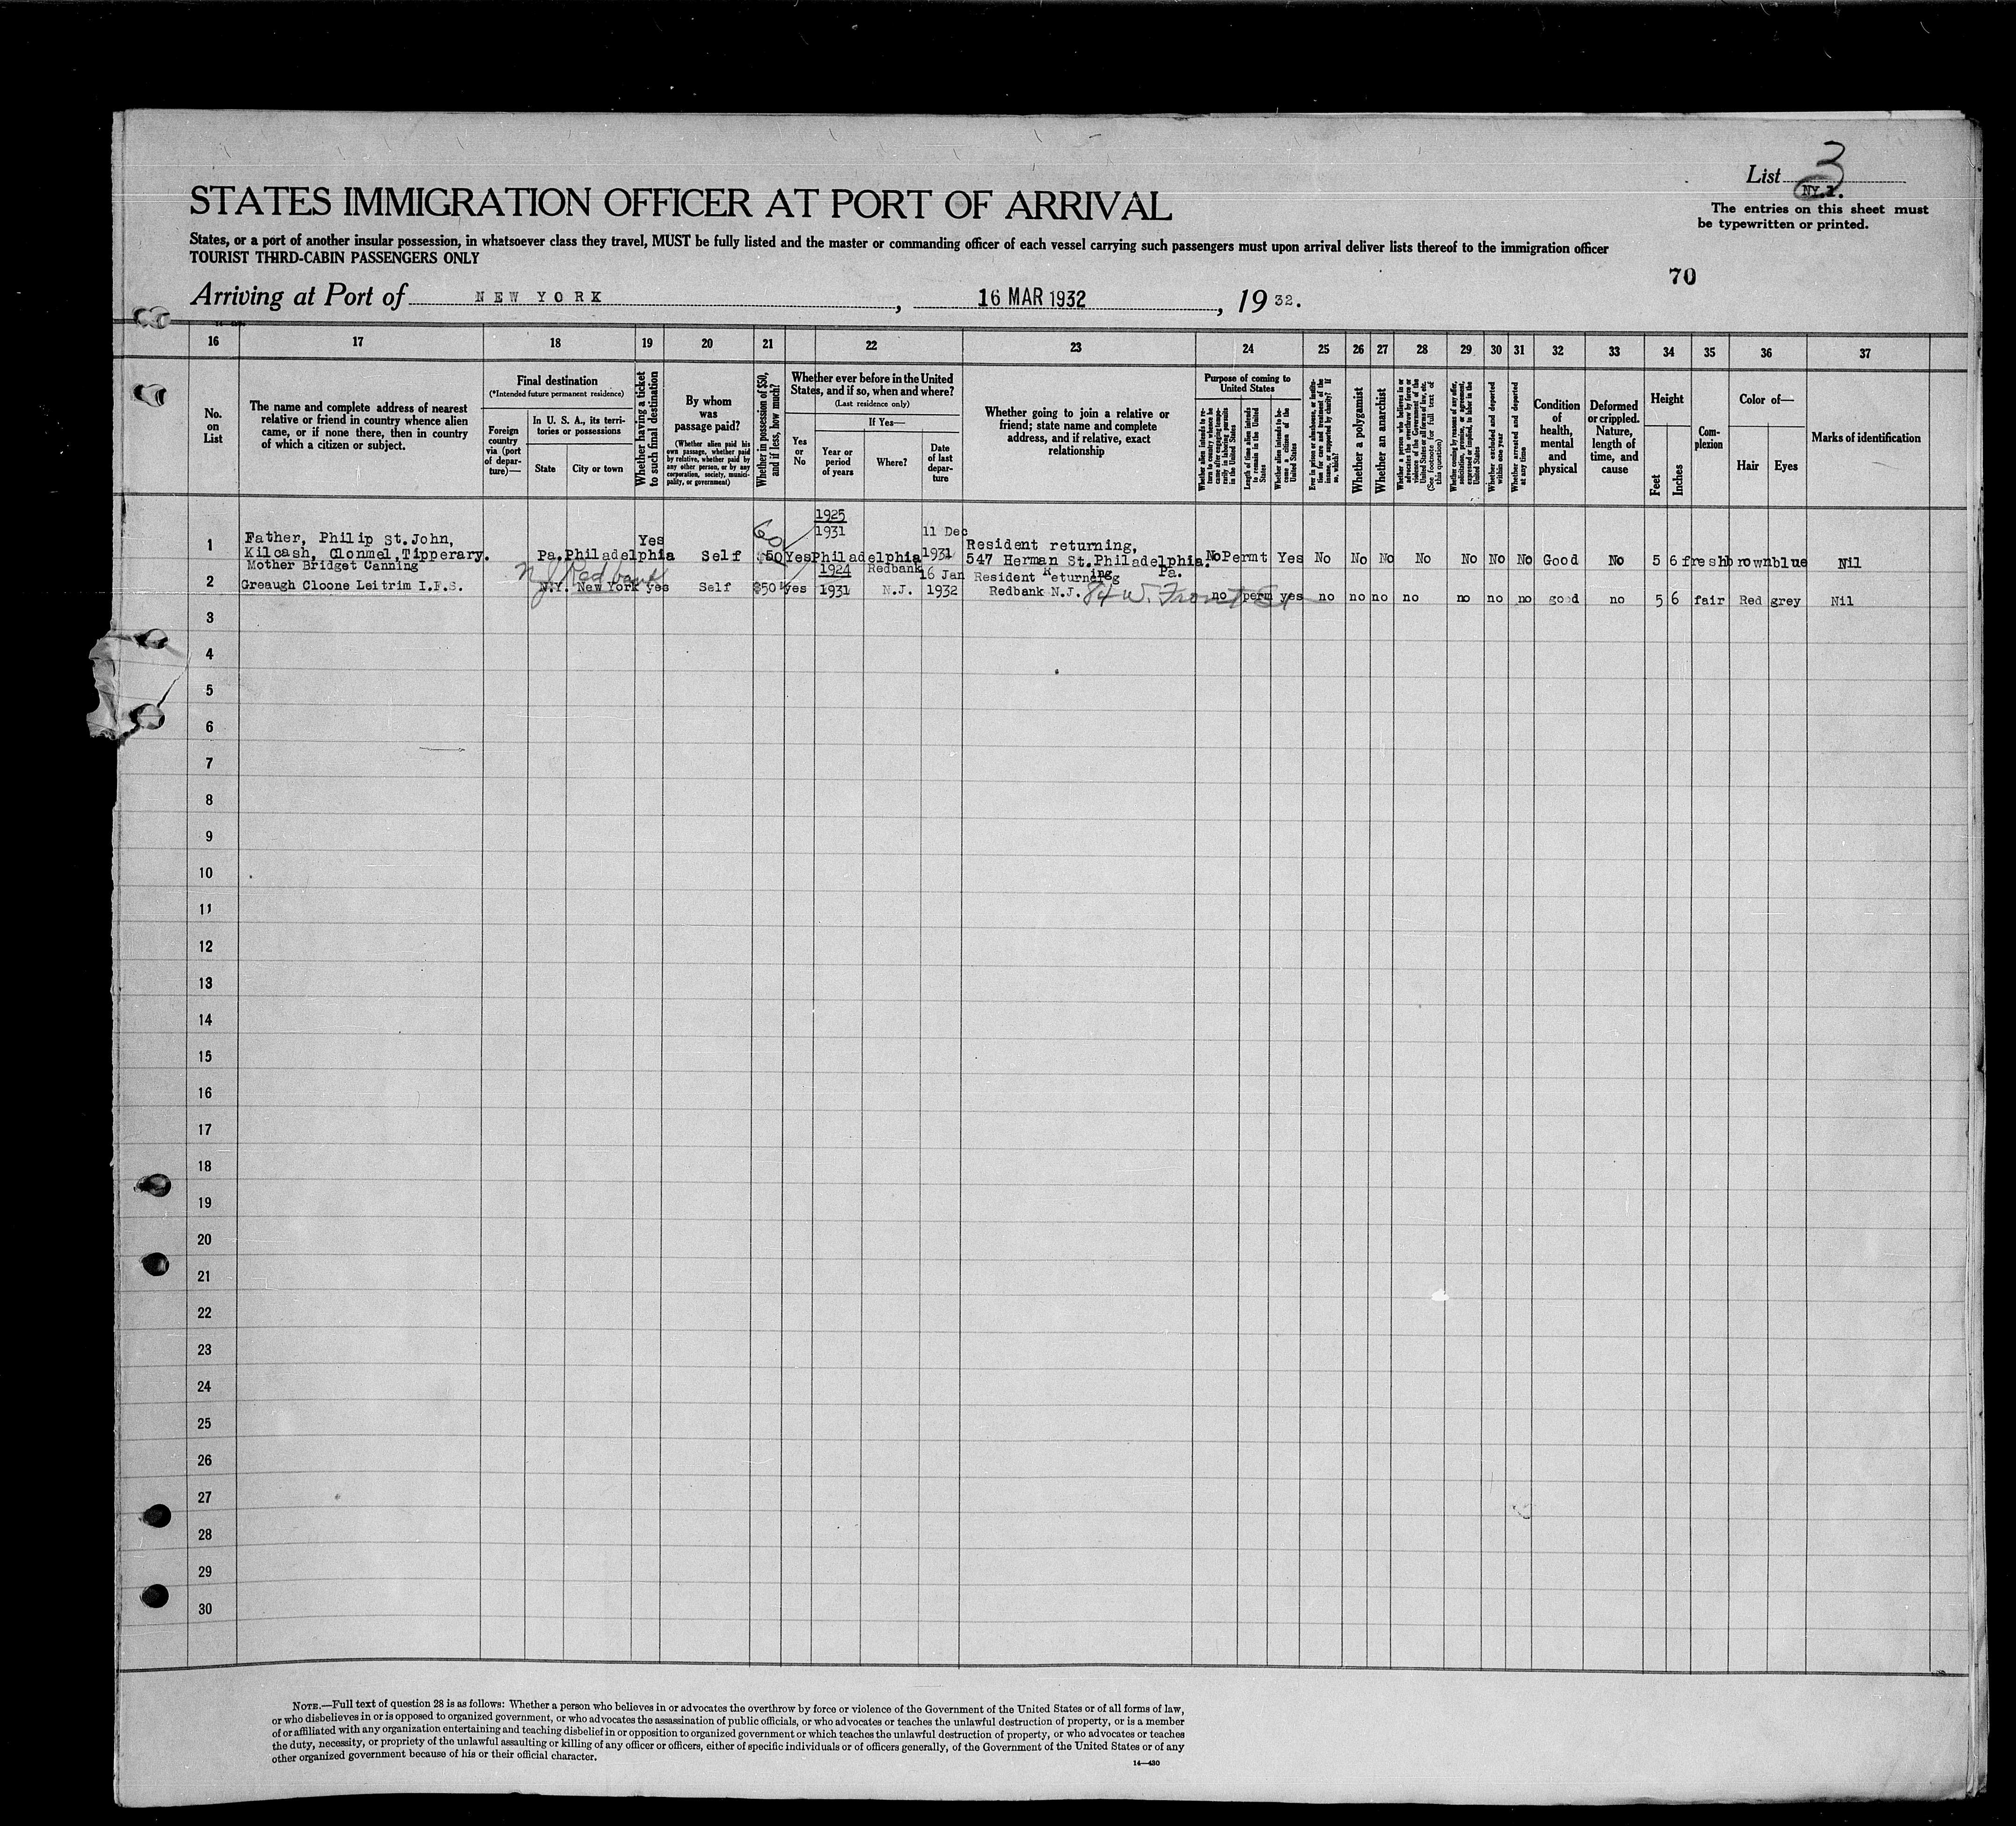 List 3
NY.1.
The entries on this sheet must
be typewritten or printed.
STATES IMMIGRATION OFFICER AT PORT OF ARRIVAL
States, or a port of another insular possession, in whatsoever class they travel, MUST be fully listed and the master or commanding officer of each vessel carrying such passengers must upon arrival deliver lists thereof to the immigration officer
TOURIST THIRD-CABIN PASSENGERS ONLY
70
Arriving at Port of NEW YORK, 16 MAR 1932, 19 32.
16 17 18 19 20 21 22 23 24 25 26 27 28 29 30 31 32 33 34 35 36 37
No.
on
List
The name and complete address of nearest
relative or friend in country whence alien
came, or if none there, then in country
of which a citizen or subject.
Final destination
(*Intended future permanent residence)
Foreign
country
via (port
of depar-
ture)—
In U. S. A., its terri-
tories or possessions
State
City or town
Whether having a ticket
to such final destination
By whom
was
passage paid?
(Whether alien paid his
own passage, whether paid
by relative, whether paid by
any other person, or by any
corporation, society, munici-
pality, or government)
Whether in possession of $50,
and if less, how much?
Whether ever before in the United
States, and if so, when and where?
(Last residence only)
Yes
or
No
If Yes—
Year or
period
of years
Where?
Date
of last
depar-
ture
Whether going to join a relative or
friend; state name and complete
address, and if relative, exact
relationship
Purpose of coming to
United States
Whether alien intends to re-
turn to country whence he
came after engaging tempo-
rarily in laboring pursuits
in the United States
Length of time alien intends
to remain in the United
States
Whether alien intends to be-
come a citizen of the
United States
Ever in prison or almshouse, or institu-
tion for care and treatment of the
insane, or supported by charity? If
so, which?
Whether a polygamist
Whether an anarchist
Whether a person who believes in or
advocates the overthrow by force or
violence of the Government of the
United States or all forms of law, etc.
(See footnote for full text of
this question)
Whether coming by reasons of any offer,
solicitation, promise, or agreement,
expressed or implied, to labor in the
United States
Whether excluded and deported
within one year
Whether arrested and deported
at any time
Condition
of
health,
mental
and
physical
Deformed
or crippled.
Nature,
length of
time, and
cause
Height
Feet
Inches
Com-
plexion
Color of—
Hair
Eyes
Marks of identification
1 Father, Philip St.John,
Kilcash, Clonmel,Tipperary. Pa. Philadelphia Yes Self $50 60 Yes 1925
1931 Philadelphia 11 Dec
1931 Resident returning,
547 Herman St.Philadelphia.
Pa. No Permt Yes No No No No No No No Good No 5 6 fresh brown blue Nil
2 Mother Bridget Canning
Greaugh Cloone Leitrim I.F.S. N.J. Redbank
N.Y. New York yes Self $50 yes 1924
1931 Redbank
N.J. 16 Jan
1932 Resident Returning
Redbank N.J. 84 W. Front St no perm yes no no no no no no no good no 5 6 fair Red grey Nil
3
4
5
6
7
8
9
10
11
12
13
14
15
16
17
18
19
20
21
22
23
24
25
26
27
28
29
30
NOTE.—Full text of question 28 is as follows: Whether a person who believes in or advocates the overthrow by force or violence of the Government of the United States or of all forms of law,
or who disbelieves in or is opposed to organized government, or who advocates the assassination of public officials, or who advocates or teaches the unlawful destruction of property, or is a member
of or affiliated with any organization entertaining and teaching disbelief in or opposition to organized government or which teaches the unlawful destruction of property, or who advocates or teaches
the duty, necessity, or propriety of the unlawful assaulting or killing of any officer or officers, either of specific individuals or of officers generally, of the Government of the United States or of any
other organized government because of his or their official character.
14—430